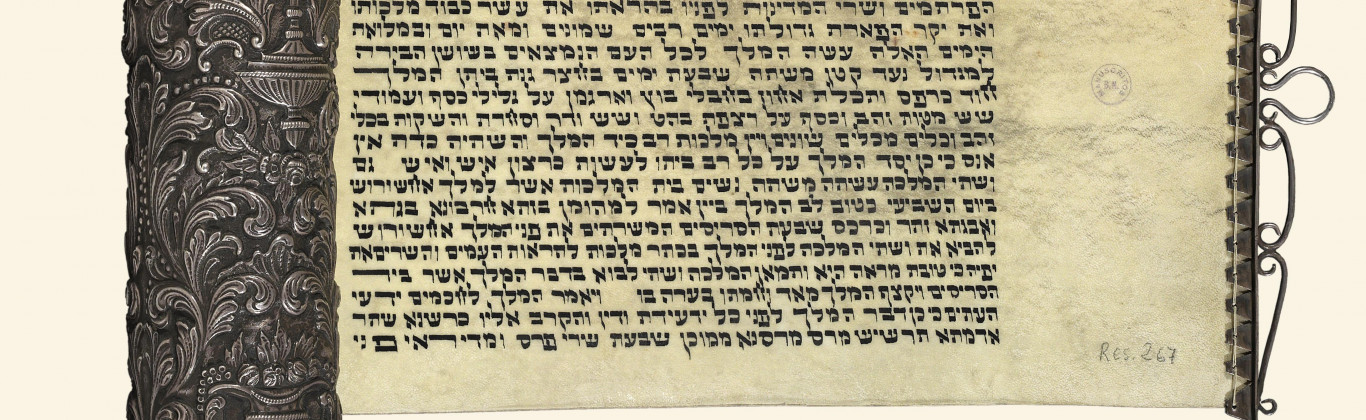 הפרתמים ושרי המדינות לפניו בהראתו את עשר כבוד מלכותו
ואת יקר תפארת גדולתו ימים רבים שמונים ומאת יום ובמלואת
הימים האלה עשה המלך לכל העם הנמצאים בשושן הבירה
למגדול ועד קטן משתה שבעת ימים בחצר גנת ביתן המלך
חור כרפס ותכלת אחוז בחבלי בוץ וארגמן על גלילי כסף ועמודי
שש מטות זהב וכסף על רצפת בהט ושש ודר וסחרת והשקות בכלי
זהב וכלים מכלים שונים ויין מלכות רב כיד המלך והשתיה כדת אין
אנס כי כן יסד המלך על כל רב ביתו לעשות כרצון איש ואיש גם
ושתי המלכה עשתה משתה נשים בית המלכות אשר למלך אחשורוש
ביום השביעי כטוב לב המלך ביין אמר למהומן בזתא חרבונא בגתא
ואבגתא זתר וכרכס שבעת הסריסים המשרתים את פני המלך אחשורוש
להביא את ושתי המלכה לפני המלך בכתר מלכות להראות העמים והשרים את
יפיה כי טובת מראה היא ותמאן המלכה ושתי לבוא בדבר המלך אשר ביד
הסריסים ויקצף המלך מאד וחמתו בערה בו ויאמר המלך לחכמים ידעי
העתים כי כן דבר המלך לפני כל ידעי דת ודין והקרב אליו כרשנא שתר
אדמתא תרשיש מרס מרסנא ממוכן שבעת שרי פרס ומדי ראי פני
MANUSCRITOS
B.N.
Res. 267